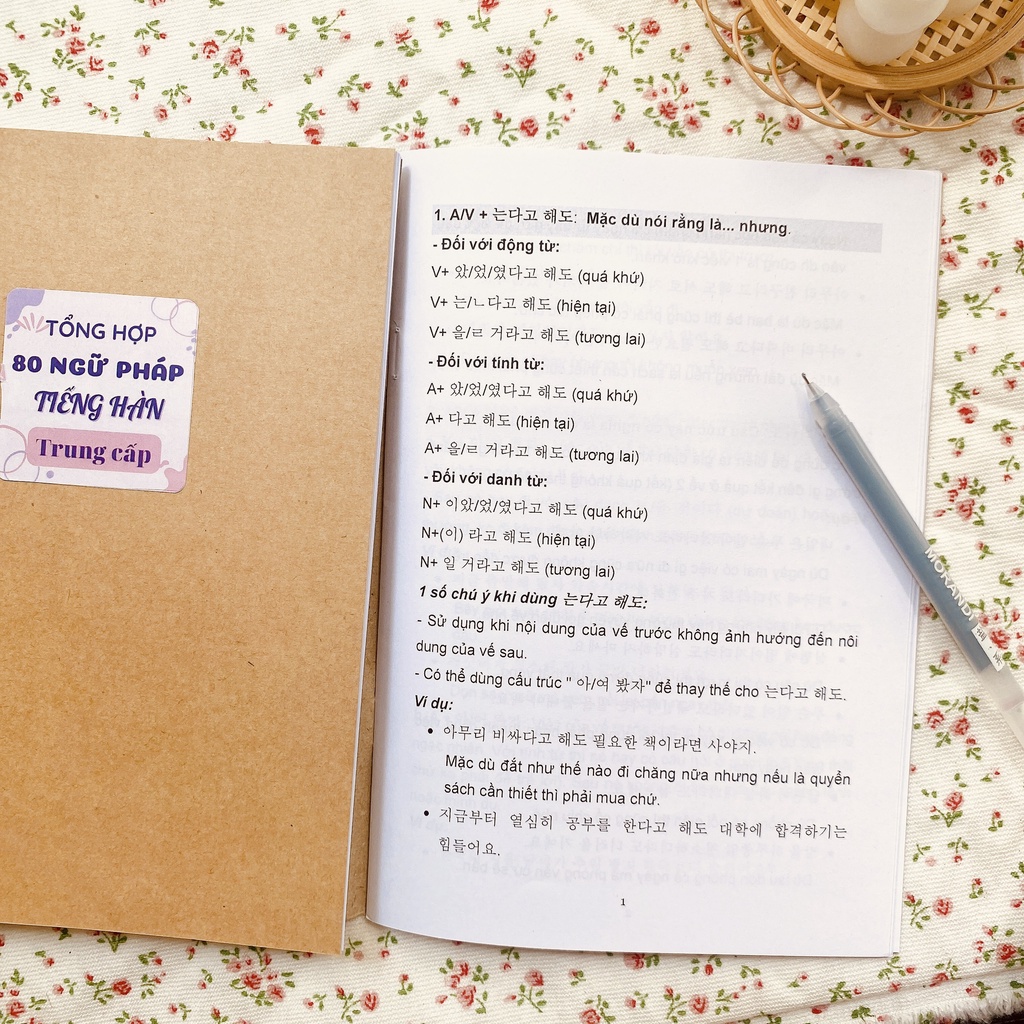 TỔNG HỢP
80 NGỮ PHÁP
TIẾNG HÀN
Trung cấp
1. A/V + 는다고 해도: Mặc dù nói rằng là... nhưng.
- Đối với động từ:
V+ 았/었/였다고 해도 (quá khứ)
V+ 는/ㄴ다고 해도 (hiện tại)
V+ 을/ㄹ 거라고 해도 (tương lai)
- Đối với tính từ:
A+ 았/었/였다고 해도 (quá khứ)
A+ 다고 해도 (hiện tại)
A+ 을/ㄹ 거라고 해도 (tương lai)
- Đối với danh từ:
N+ 이았/었/였다고 해도 (quá khứ)
N+(이) 라고 해도 (hiện tại)
N+ 일 거라고 해도 (tương lai)
1 số chú ý khi dùng 는다고 해도:
- Sử dụng khi nội dung của vế trước không ảnh hưởng đến nôi
dung của vế sau.
- Có thể dùng cấu trúc " 아/여 봤자" để thay thế cho 는다고 해도.
Ví dụ:
• 아무리 비싸다고 해도 필요한 책이라면 사야지.
Mặc dù đắt như thế nào đi chăng nữa nhưng nếu là quyển
sách cần thiết thì phải mua chứ.
• 지금부터 열심히 공부를 한다고 해도 대학에 합격하기는
힘들어요.
1
MORANDI